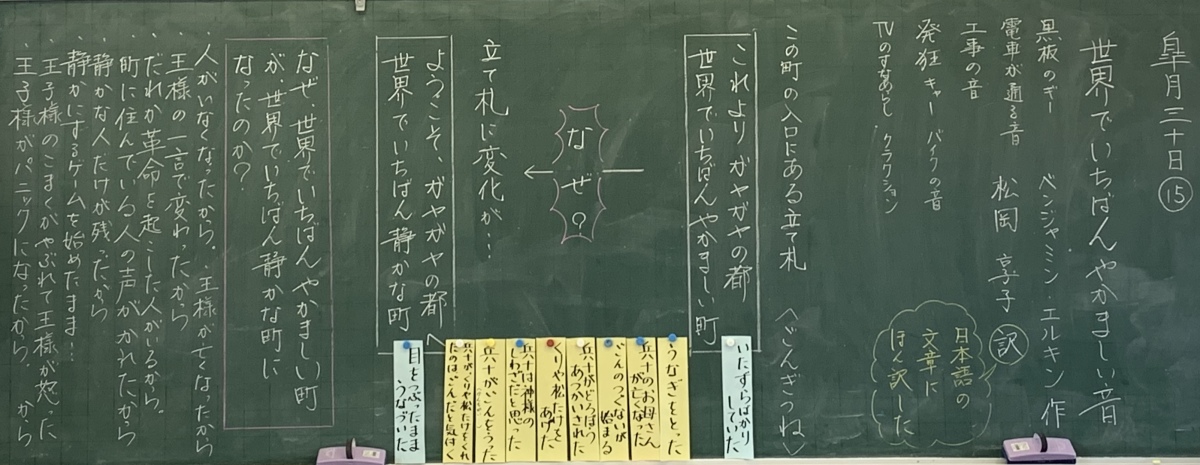 皐月三十日⑮
世界でいちばんやかましい音
ベンジャミン・エルキン 作
松岡 享子 訳
日本語の
文章に
ほん訳した
黒板のギー
電車が通る音
工事の音
発狂 キャー バイクの音
TVのすなあらし クラクション
この町の入口にある立て札
これよりガヤガヤの都
世界でいちばんやかましい町
なぜ?
立て札に変化が…
ようこそ、ガヤガヤの都へ
世界でいちばん静かな町
なぜ、世界でいちばんやかましい町
が、世界でいちばん静かな町に
なったのか?
人がいなくなったから。
・王様がてくなったから
王様の一言で変わったから
・だれか革命を起こした人がいるから。
町に住んでいる人の声がかれたから
・静かな人だけが残ったから
静かにするゲームを始めたまま…
・王子様のこまくがやぶれて王様が怒った
から
・王子様がパニックになったから。
〈ごんぎつね〉
いたずらばかり
していた
うなぎをとった
兵十のお母さん
が亡くなった
ごんのつぐないが
始まる
兵十がどろぼう
あつかいされた
くりや松たけを
あげた
兵十は神様の
しわざだと思った
兵十がごんをうった
兵十がくりや松たけをくれ
たのはごんだと気付く
目をつぶったまま
うなづいた